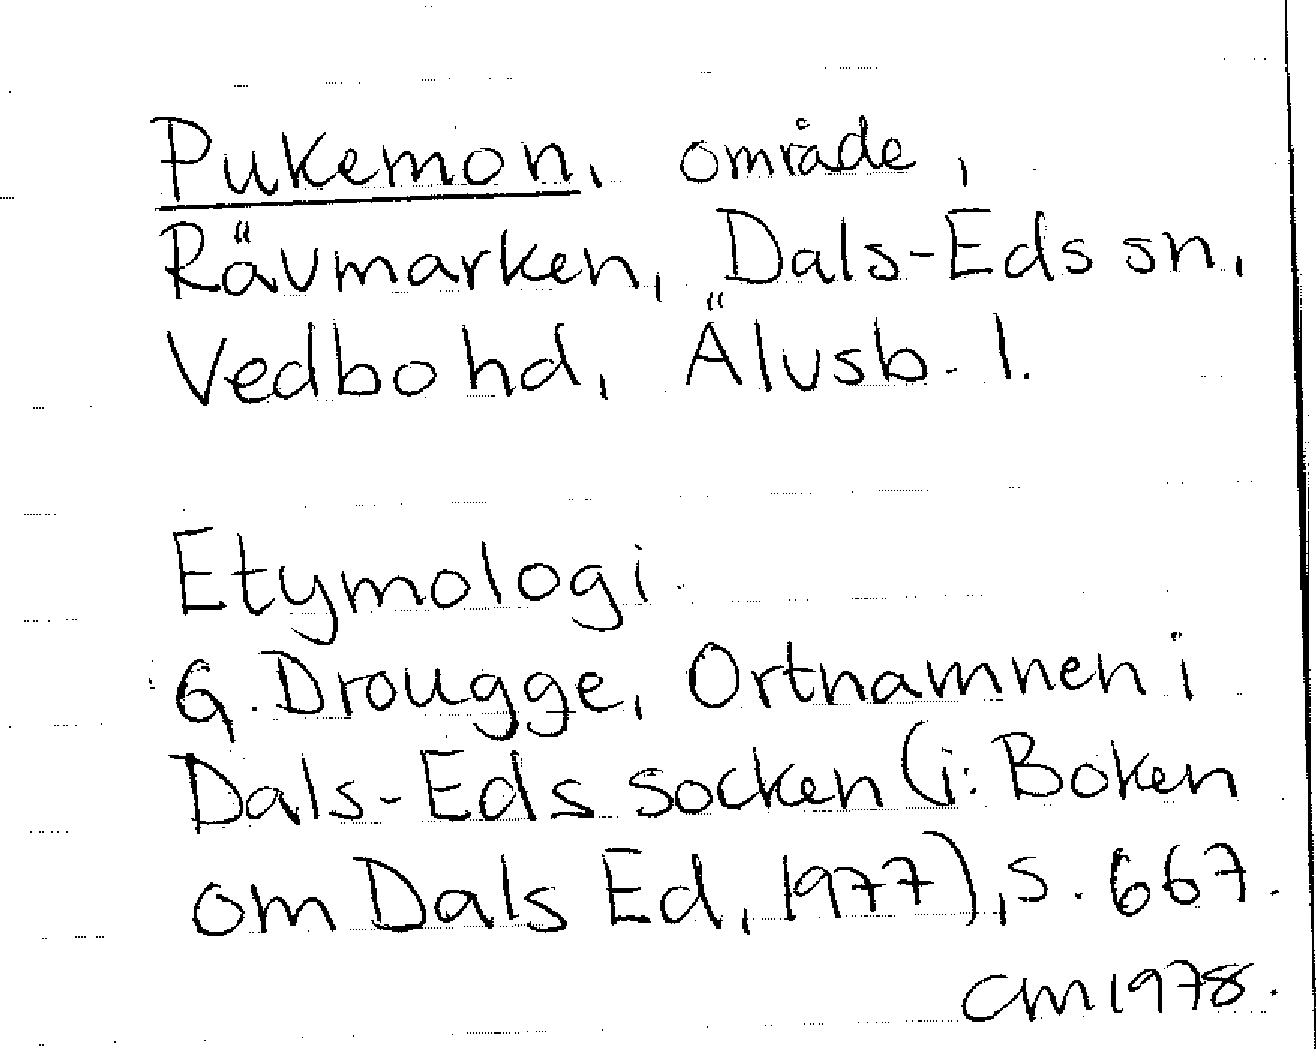 Pukemon, område,
Rävmarken, Dals-Eds sn,
Vedbo hd, Älvsb. l.
Etymologi.
G. Drougge, Ortnamnen i
Dals-Eds socken (i: Boken
om Dals Ed, 1977), s. 667.
CM 1978.